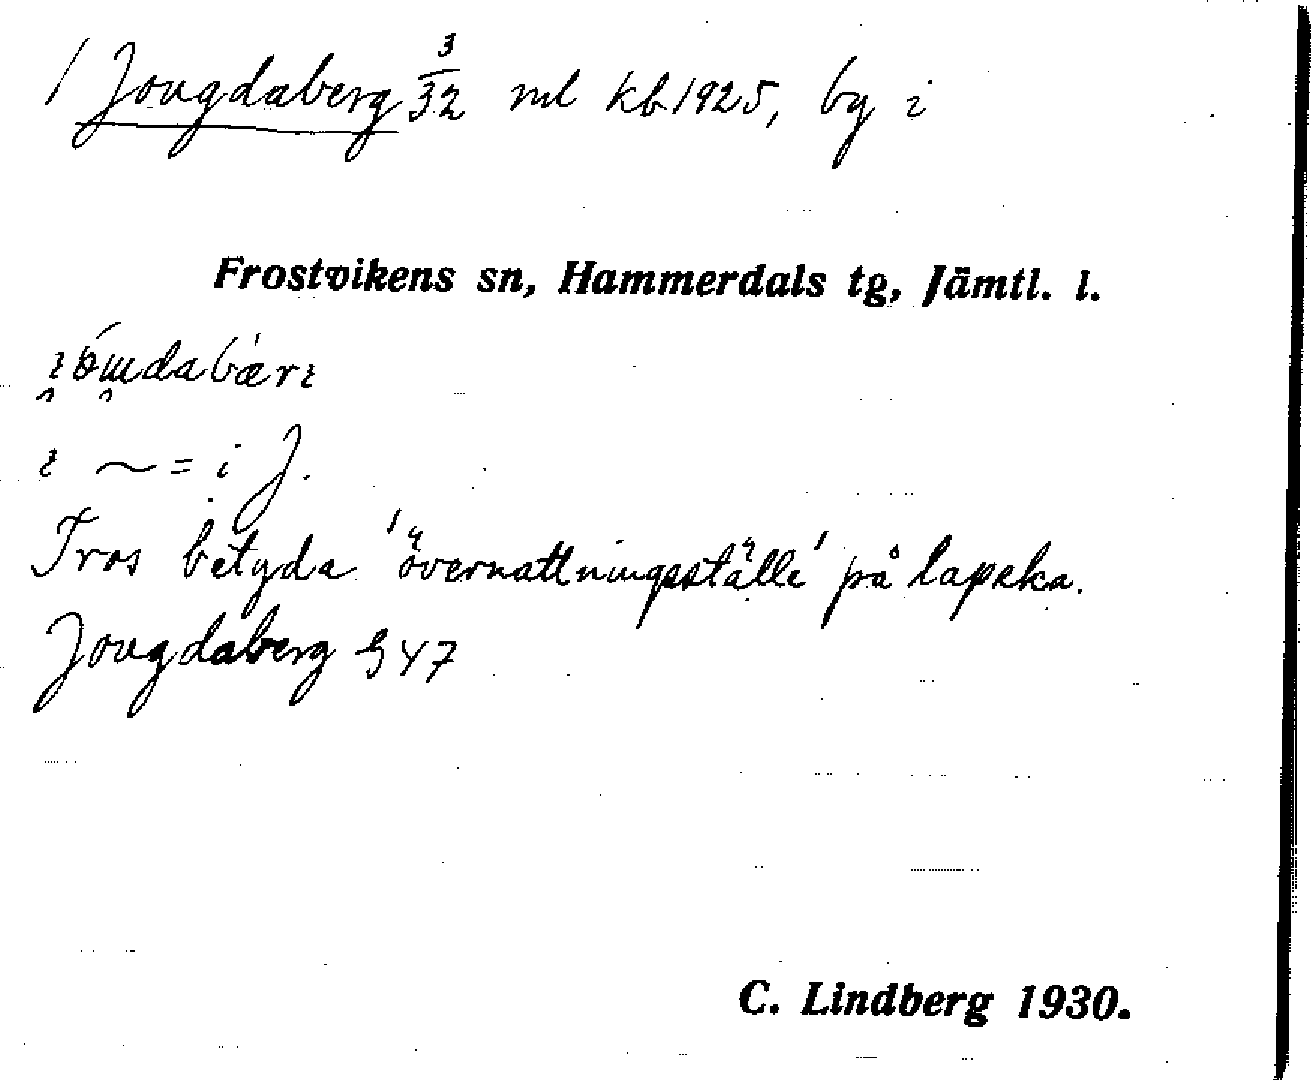 / Jougdaberg 3/32 ml kb 1925, by i
Frostvikens sn, Hammerdals tg, Jämtl. l.
~ = i J.
Tros betyda 'övernattningsställe' på lapska.
Jougdaberg G47
C. Lindberg 1930.